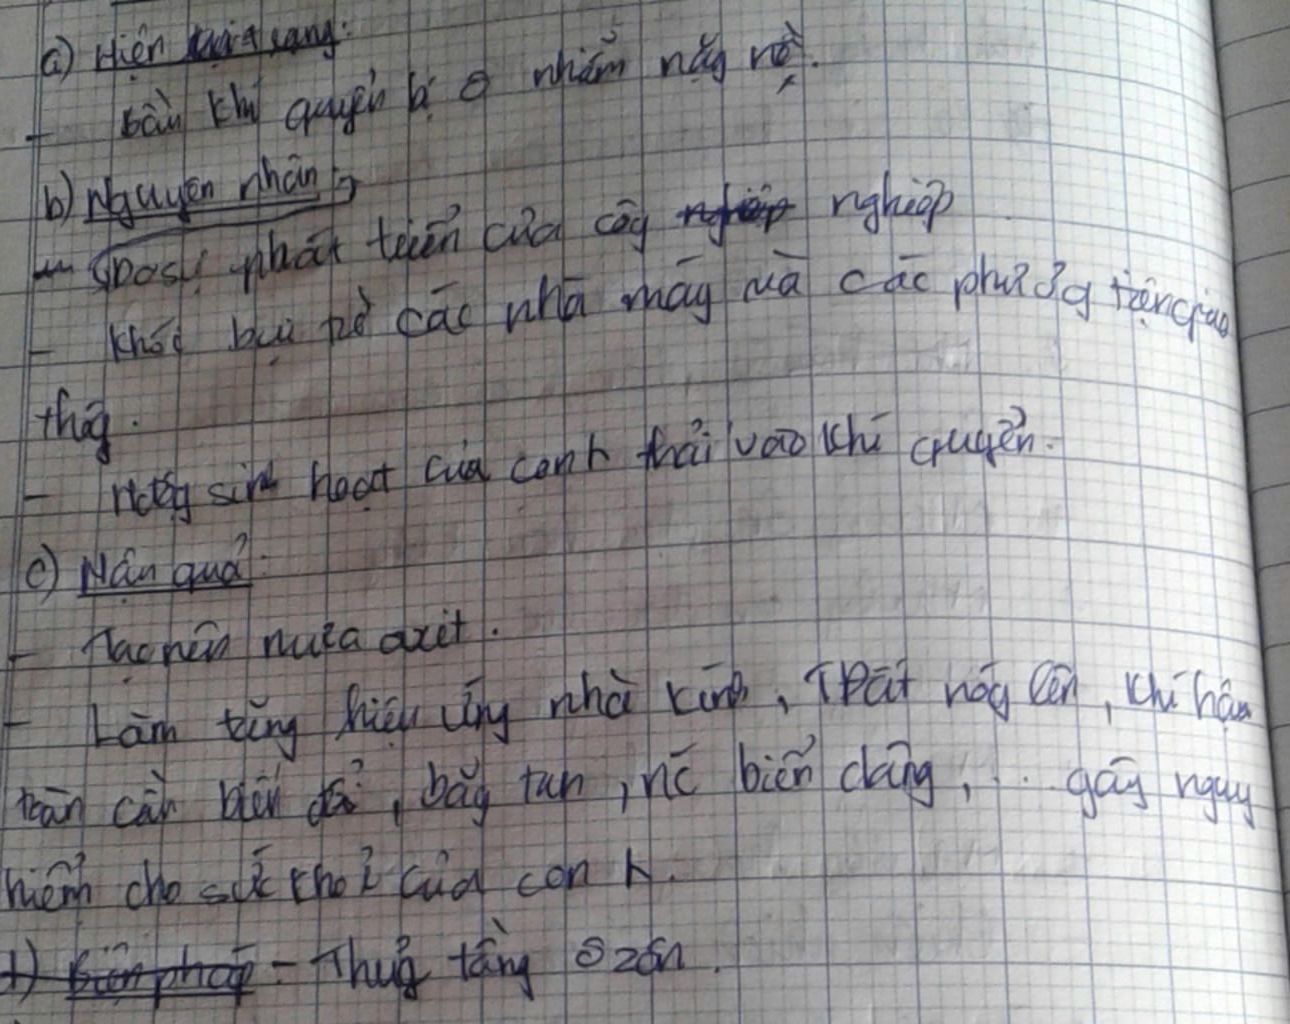 a) Hiện trạng:
- bầu khí quyển bị ô nhiễm nặg nề.
b) Nguyên nhân:
- Do sự phát triển của côg nghiệp
- Khói bụi từ các nhà máy và các phươg tiện giao
thôg.
- Hđộg sinh hoạt của con h thải vào khí quyển.
c) Hậu quả:
- Tạo nên mưa axit.
- Làm tăng hiệu ứng nhà kính, TĐất nóg lên, khí hậu
toàn cầu biến đổi, băg tan, nc biển dâng, ... gây nguy
hiểm cho sức khoẻ của con h.
d) - Thủg tầng ôzôn.